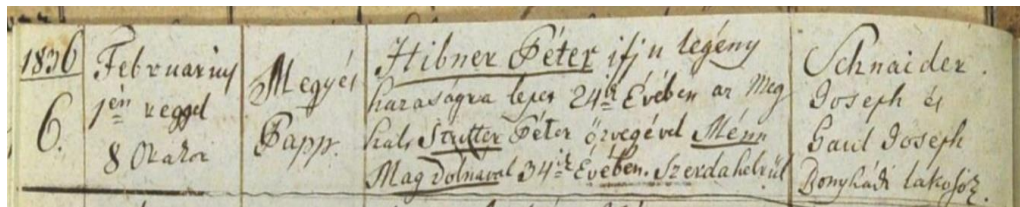 1836
6.
Februarius
1jén reggel
8 Orakor
Megyés
Papp.
Hibner Péter ifju legény
hazaságra lépet 24ik Évében az Meg
halt Strutter Péter özvegével Ménn
Magdolnával 34ik Évében. Szerdahelrül
Schnaider
Joseph és
Gaul Joseph
Bonyhádi lakosok.